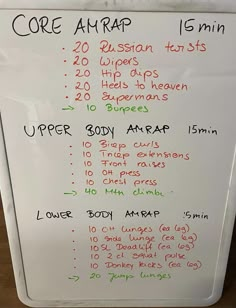 CORE AMRAP 15 min
· 20 Russian twists
· 20 Wipers
· 20 Hip dips
· 20 Heels to heaven
· 20 Supermans
→ 10 Burpees
UPPER BODY AMRAP 15min
· 10 Bicep curls
· 10 Tricep extensions
· 10 Front raises
· 10 OH press
· 10 Chest press
→ 40 Mtn climb
LOWER BODY AMRAP 15min
· 10 lunges (ea leg)
· 10 Side lunge (ea leg)
· 10 SL Deadlift (ea leg)
· 10 2 ct squat pulse
· 10 Donkey kicks (ea leg)
→ 20 Jump lunges